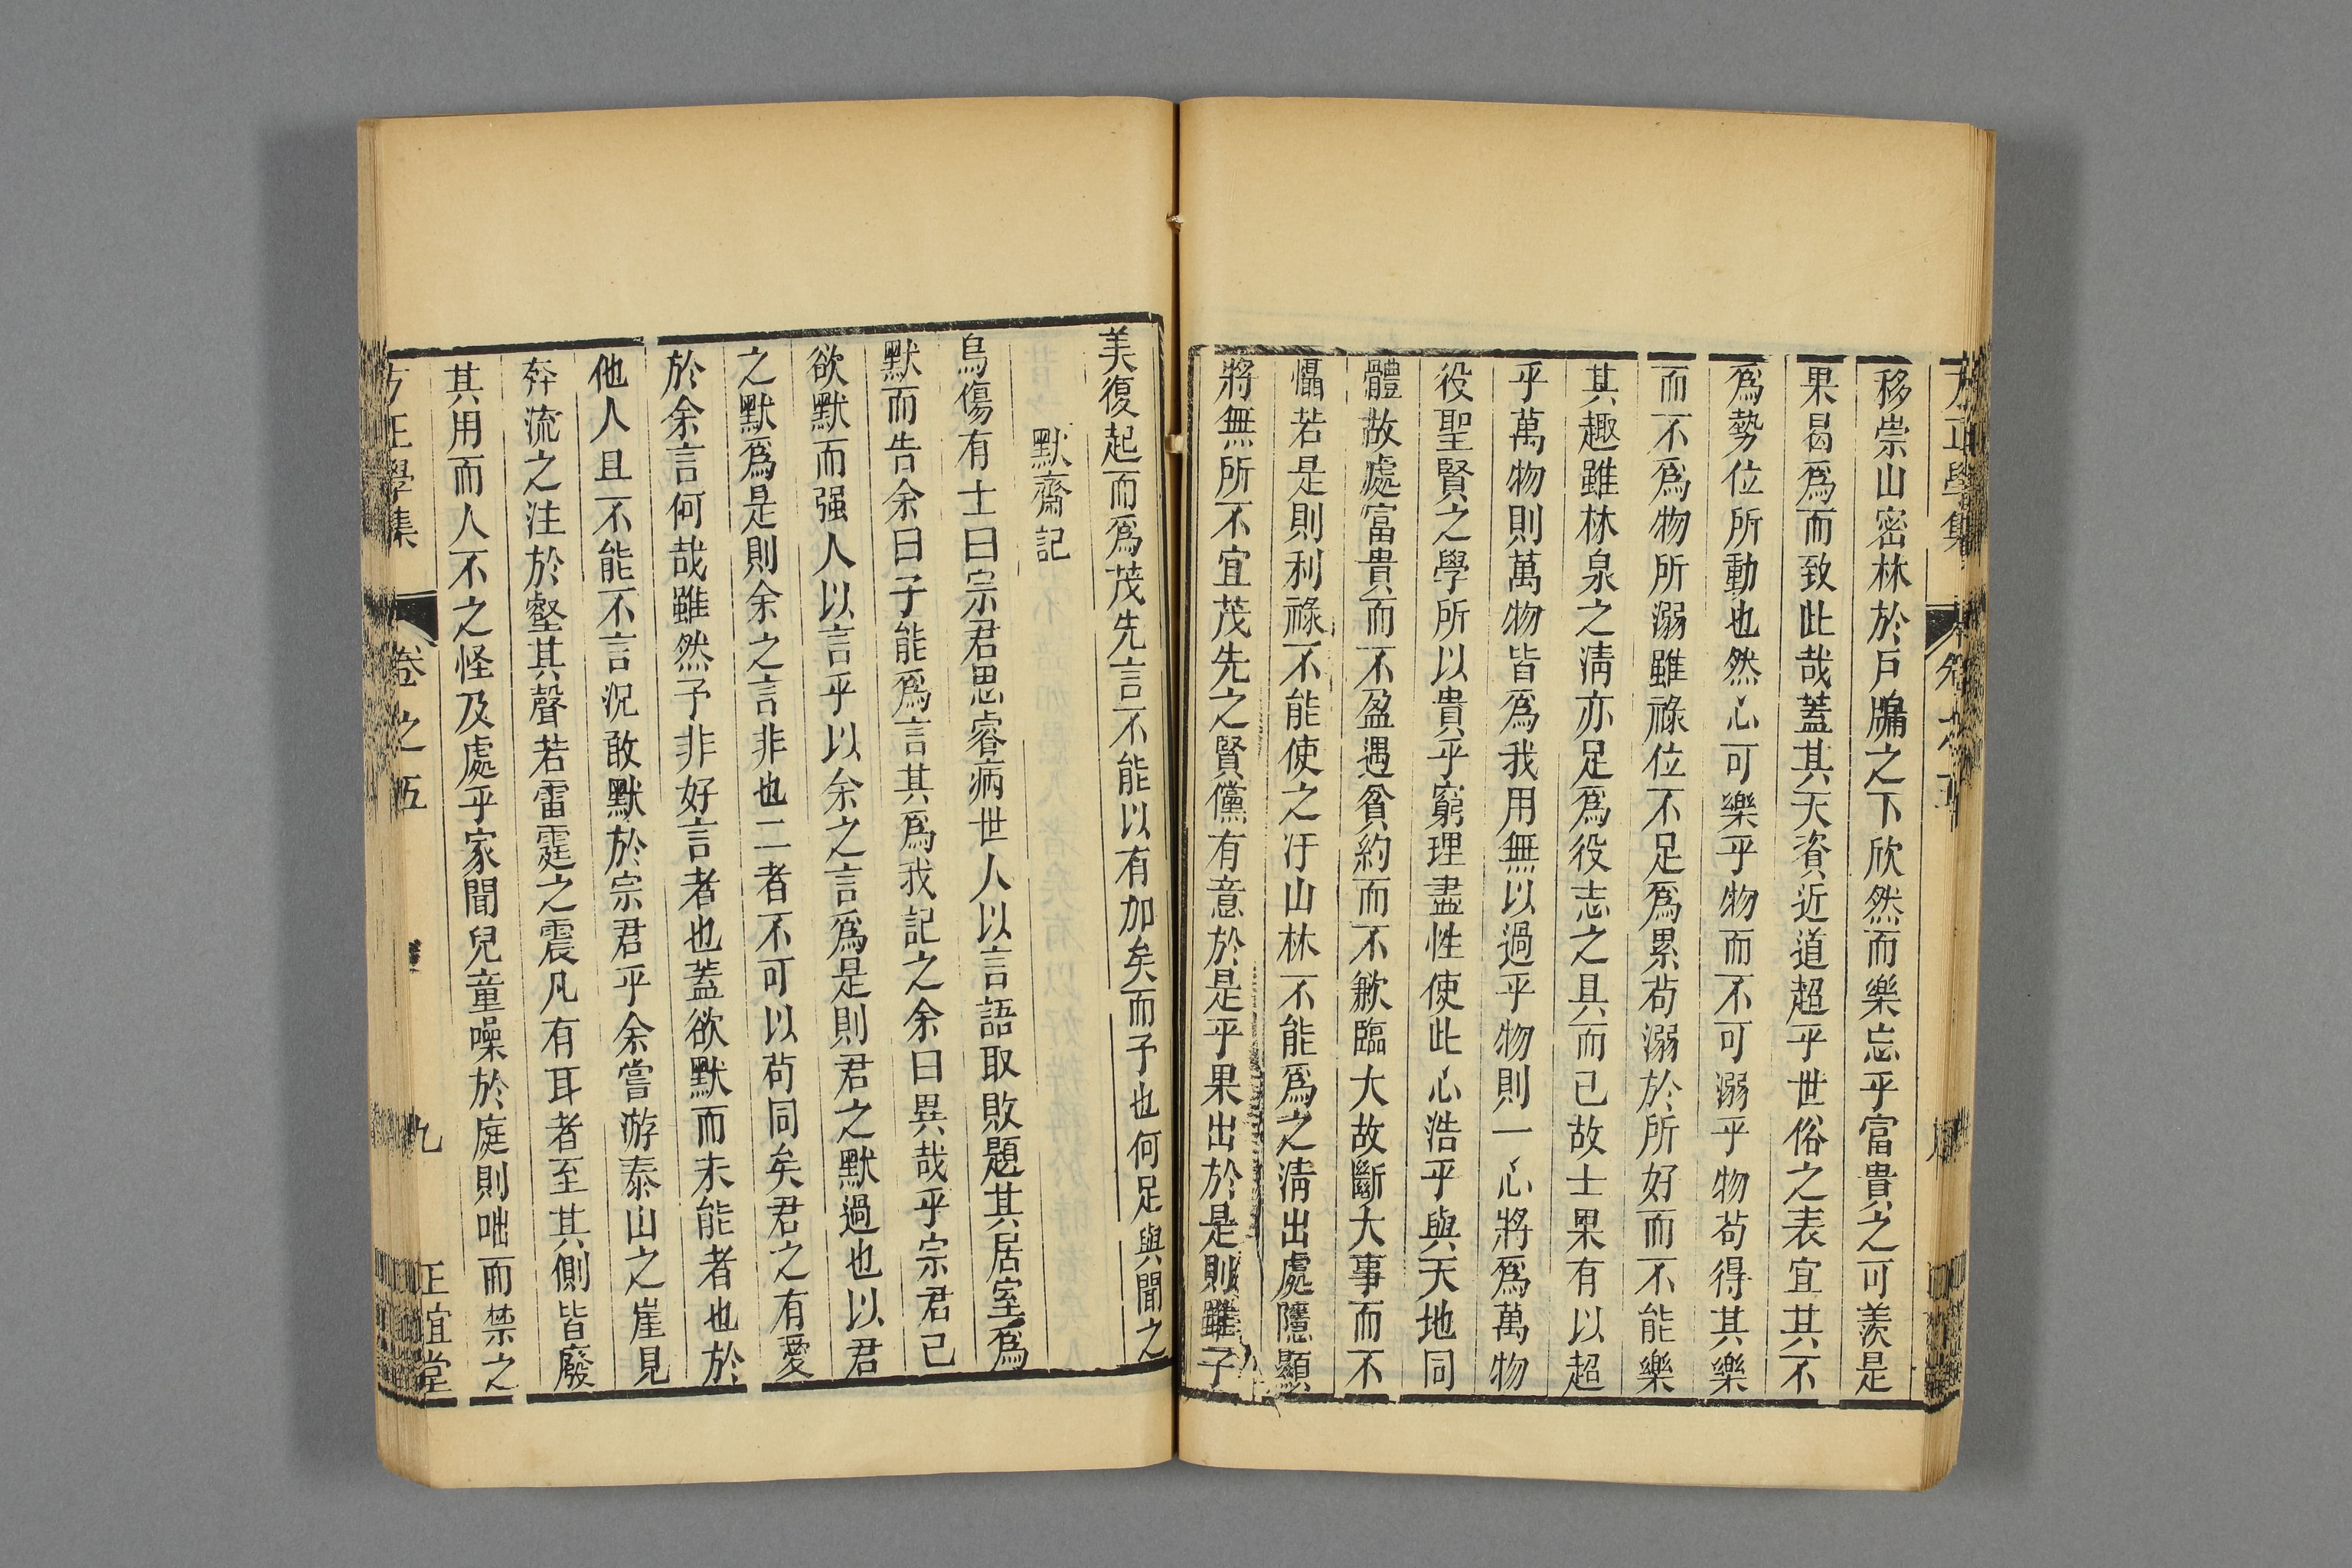 移崇山密林於戶牖之下欣然而樂忘乎富貴之可羨是
果曷爲而致此哉蓋其天資近道超乎世俗之表宜其不
爲勢位所動也然心可樂乎物而不可溺乎物苟得其樂
而不爲物所溺雖祿位不足爲累苟溺於所好而不能樂
其趣雖林泉之淸亦足爲役志之具而已故士果有以超
乎萬物則萬物皆爲我用無以過乎物則一心將爲萬物
役聖賢之學所以貴乎窮理盡性使此心浩乎與天地同
體故處富貴而不盈遇貧約而不歉臨大故斷大事而不
懾若是則利祿不能使之汙山林不能爲之淸出處隱顯
將無所不宜茂先之賢儻有意於是乎果出於是則雖子
美復起而爲茂先言不能以有加矣而予也何足與聞之
默齋記
烏傷有士曰宗君思睿病世人以言語取敗題其居室爲
默而告余曰子能爲言其爲我記之余曰異哉乎宗君已
欲默而强人以言乎以余之言爲是則君之默過也以君
之默爲是則余之言非也二者不可以苟同矣君之有愛
於余言何哉雖然予非好言者也蓋欲默而未能者也於
他人且不能不言況敢默於宗君乎余嘗游泰山之崖見
奔流之注於壑其聲若雷霆之震凡有耳者至其側皆廢
其用而人不之怪及處乎家聞兒童噪於庭則咄而禁之
方正學集 卷之五 九 正誼堂